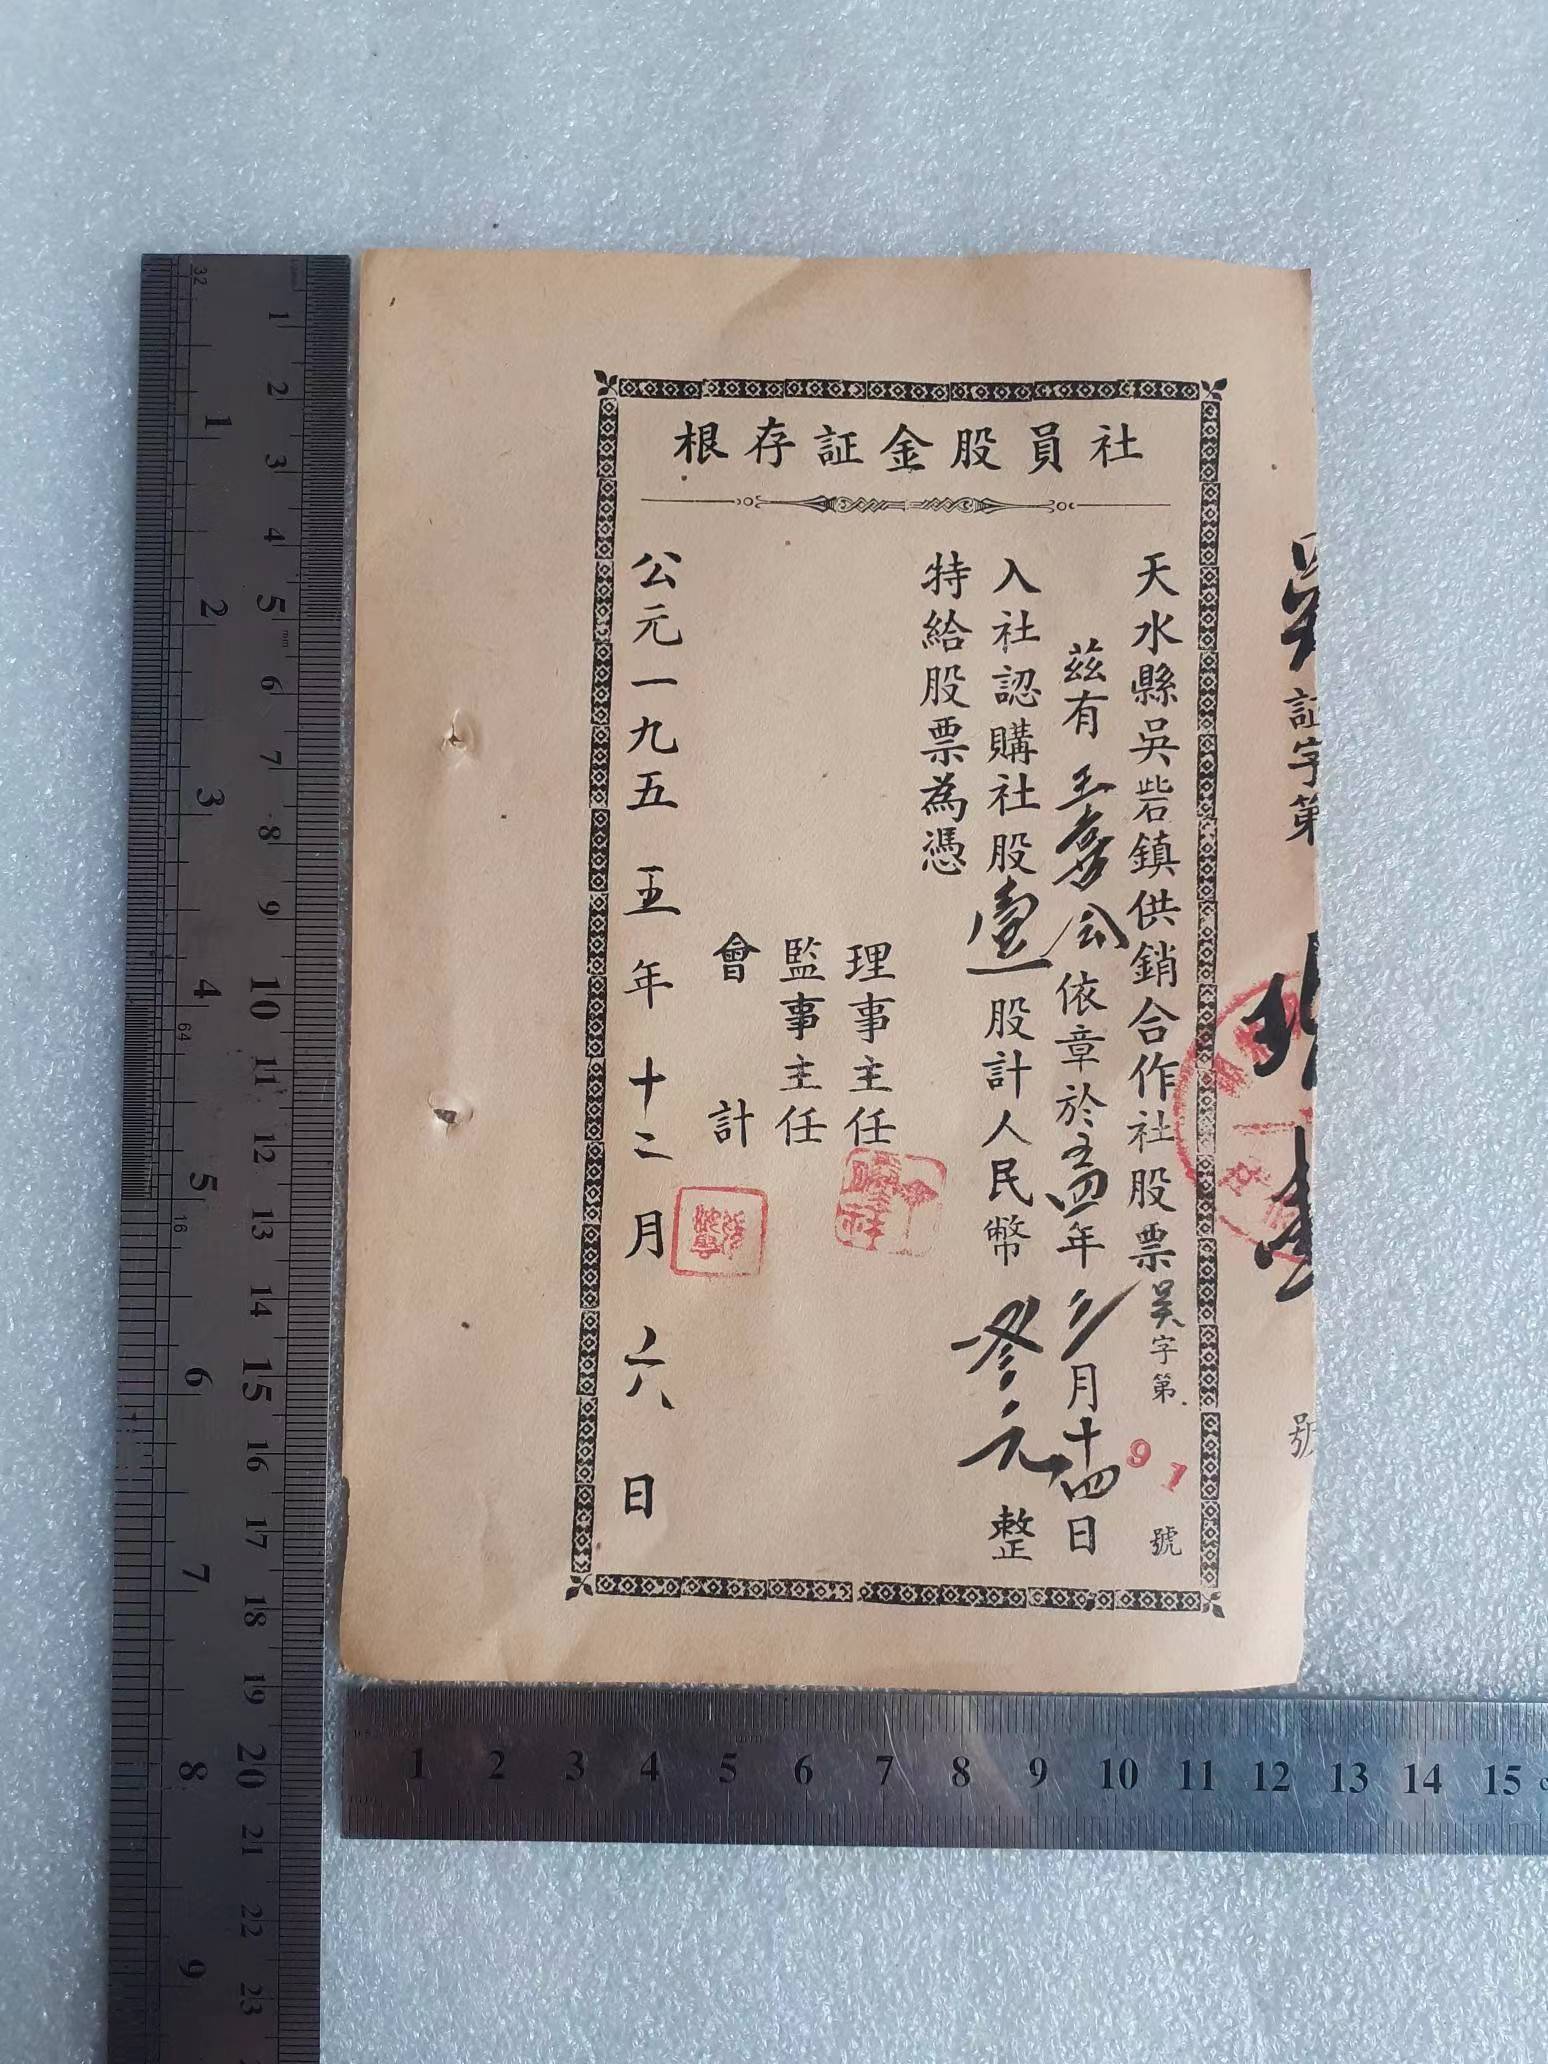 社員股金証存根
証字第
號
天水縣吳砦鎮供銷合作社股票吴字第91號
茲有王
公依章於五四年
月十四日
入社認購社股壹股計人民幣叁元整
特給股票為憑
理事主任
監事主任
會計
公元一九五五年十二月六日
1 2 3 4 5 6 7 8 9 10 11 12 13 14 15 16 17 18 19 20 21 22 23
32 1 2 3 4 64 5 16 6 7 8 9
mm
1 2 3 4 5 6 7 8 9 10 11 12 13 14 15
mm